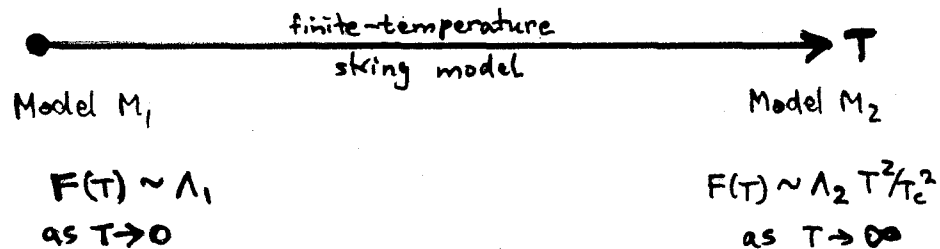 finite-temperature
string model
T
Model M₁
Model M₂
F(T) ~ Λ₁
as T→0
F(T) ~ Λ₂ T²/T_c²
as T→∞